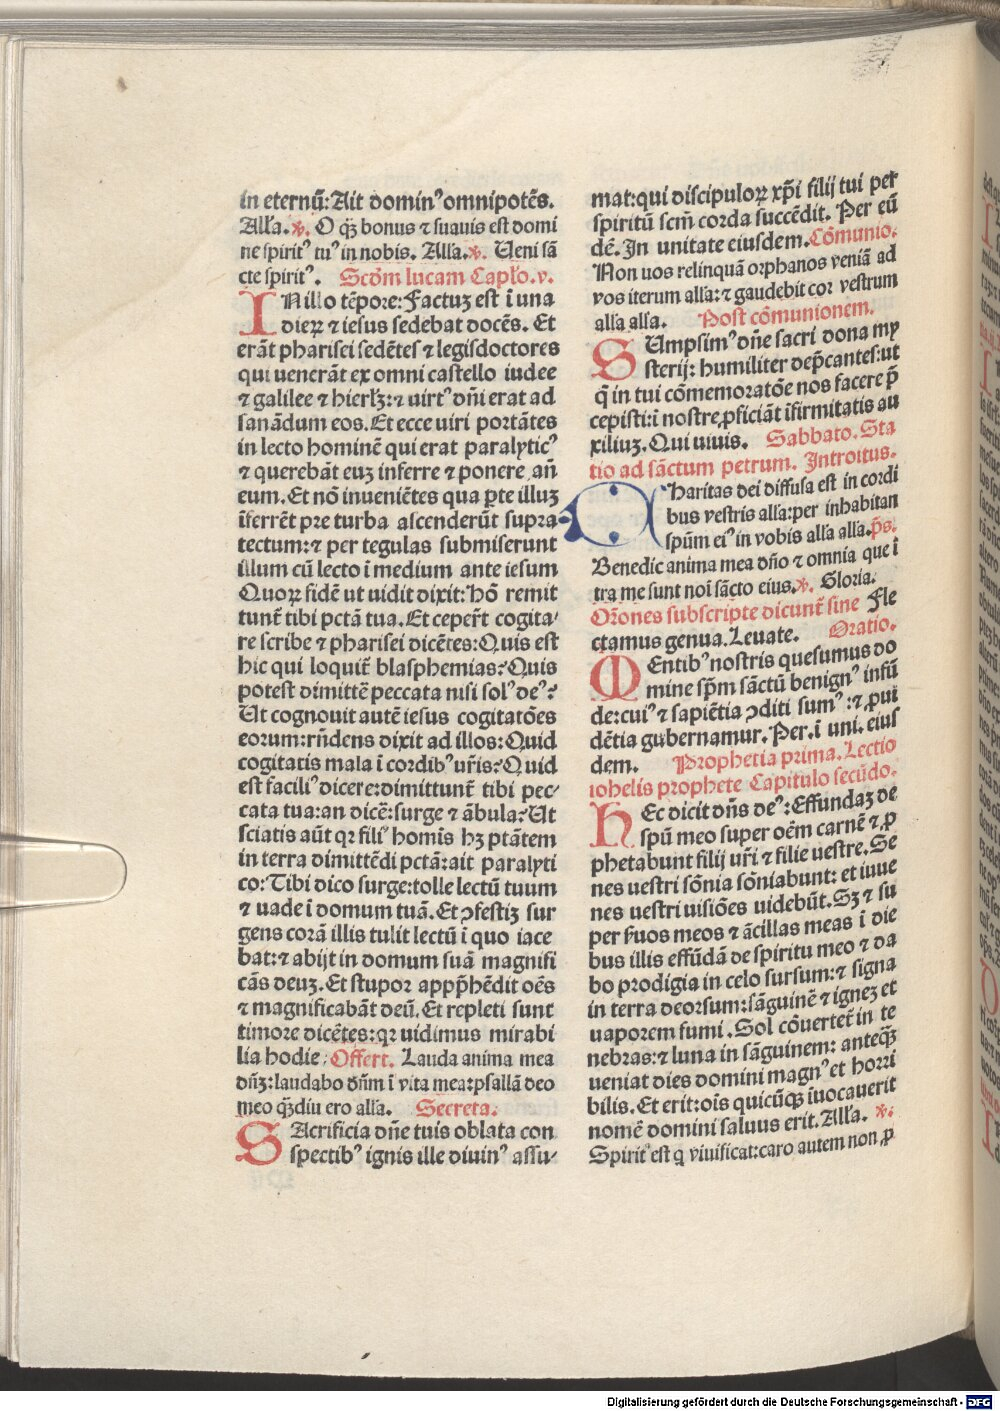 in eternū: Ait dominꝰ omnipotēs.
Alľa. ℣. O qꝫ̄ bonus ⁊ suauis est domi
ne spiritꝰ tuꝰ in nobis. Alľa. ℣. Ueni sā
cte spiritꝰ. Scđm lucam Capľo. v.
IN illo tēpore: Factuꝫ est ī una
dieꝝ ⁊ iesus sedebat docēs. Et
erāt pharisei sedētes ⁊ legisdoctores
qui uenerāt ex omni castello iudee
⁊ galilee ⁊ hierľꝫ: ⁊ uirtꝰ dn̄i erat ad
sanādum eos. Et ecce uiri portātes
in lecto hominē qui erat paralyticꝰ
⁊ querebāt euꝫ inferre ⁊ ponere an̄
eum. Et nō inueniētes qua ꝑte illuꝫ
īferrēt pre turba ascenderūt supra
tectum: ⁊ per tegulas submiserunt
illum cū lecto ī medium ante iesum
Quoꝝ fidē ut uidit dixit: hō remit
tunt̄ tibi pctā tua. Et ceper̄t cogita⸗
re scribe ⁊ pharisei dicētes: Quis est
hic qui loquit̄ blasphemias? Quis
potest dimittē peccata nisi solꝰ deꝰ?
Ut cognouit autē iesus cogitatōes
eorum: rn̄dens dixit ad illos: Quid
cogitatis mala ī cordibꝰ ur̄is? Quid
est faciliꝰ dicere: dimittunt̄ tibi pec⸗
cata tua: an dicē: surge ⁊ ābula? Ut
sciatis aūt qꝛ filiꝰ homīs hꝫ ptātem
in terra dimittēdi pctā: ait paralyti
co: Tibi dico surge: tolle lectū tuum
⁊ uade ī domum tuā. Et ꝯfestiꝫ sur
gens corā illis tulit lectū ī quo iace
bat: ⁊ abijt in domum suā magnifi
cās deuꝫ. Et stupor appp̄hēdit oēs
⁊ magnificabāt deū. Et repleti sunt
timore dicētes: qꝛ uidimus mirabi
lia hodie: Offert. Lauda anima mea
dn̄ꝫ: laudabo dn̄m ī vita mea: psallā deo
meo qꝫ̄diu ero alľa. Secreta.
SAcrificia dn̄e tuis oblata con
spectibꝰ ignis ille diuinꝰ assu⸗
mat: qui discipuloꝝ xp̄i filij tui per
spiritū scm̄ corda succēdit. Per eū
dē. In unitate eiusdem. Cōmunio.
Non uos relinquā orphanos veniā ad
vos iterum alľa: ⁊ gaudebit cor vestrum
alľa alľa. Post cōmunionem.
SUmpsimꝰ dn̄e sacri dona my
sterij: humiliter dep̄cantes: ut
q̄ in tui cōmemoratōe nos facere p̄
cepisti: ī nostre ꝓficiāt īfirmitatis au
xiliuꝫ. Qui uiuis. Sabbato. Sta
tio ad sāctum petrum. Introitus.
CHaritas dei diffusa est in cordi
bus vestris alľa: per inhabitan
spūm eiꝰ in vobis alľa alľa. p̄s.
Benedic anima mea dn̄o ⁊ omnia que ī
tra me sunt noī sācto eius. ℣. Gloria.
Or̄ones subscripte dicunt̄ sine Fle
ctamus genua. Leuate. Oratio.
MEntibꝰ nostris quesumus do
mine sp̄m sāctū benignꝰ infū
de: cuiꝰ ⁊ sapiētia ꝯditi sumꝰ: ⁊ ꝓui
dētia gubernamur. Per. ī uni. eius
dem. Prophetia prima. Lectio
iohelis prophete Capitulo secūdo.
HEc dicit dn̄s deꝰ: Effundaꝫ de
spū meo super oēm carnē ⁊ ꝓ
phetabunt filij ur̄i ⁊ filie uestre. Se
nes uestri sōnia sōniabunt: et iuue
nes uestri uisiōes uidebūt. Sꝫ ⁊ su
per ẜuos meos ⁊ ācillas meas ī die
bus illis effūdā de spiritu meo ⁊ da
bo prodigia in celo sursum: ⁊ signa
in terra deorsum: sāguinē ⁊ igneꝫ et
uaporem fumi. Sol cōuertet̄ in te
nebras: ⁊ luna in sāguinem: anteqꝫ̄
ueniat dies domini magnꝰ et horri
bilis. Et erit: oīs quicūqꝫ īuocauerit
nomē domini saluus erit. Alľa. ℣.
Spiritꝰ est q̄ viuificat: caro autem non ꝓ
Digitalisierung gefördert durch die Deutsche Forschungsgemeinschaft - DFG